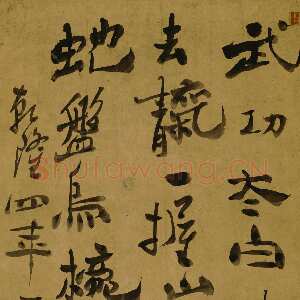 武功太白
去靝一握山
虵盤鳥
乾隆四年
Shufawang.CN